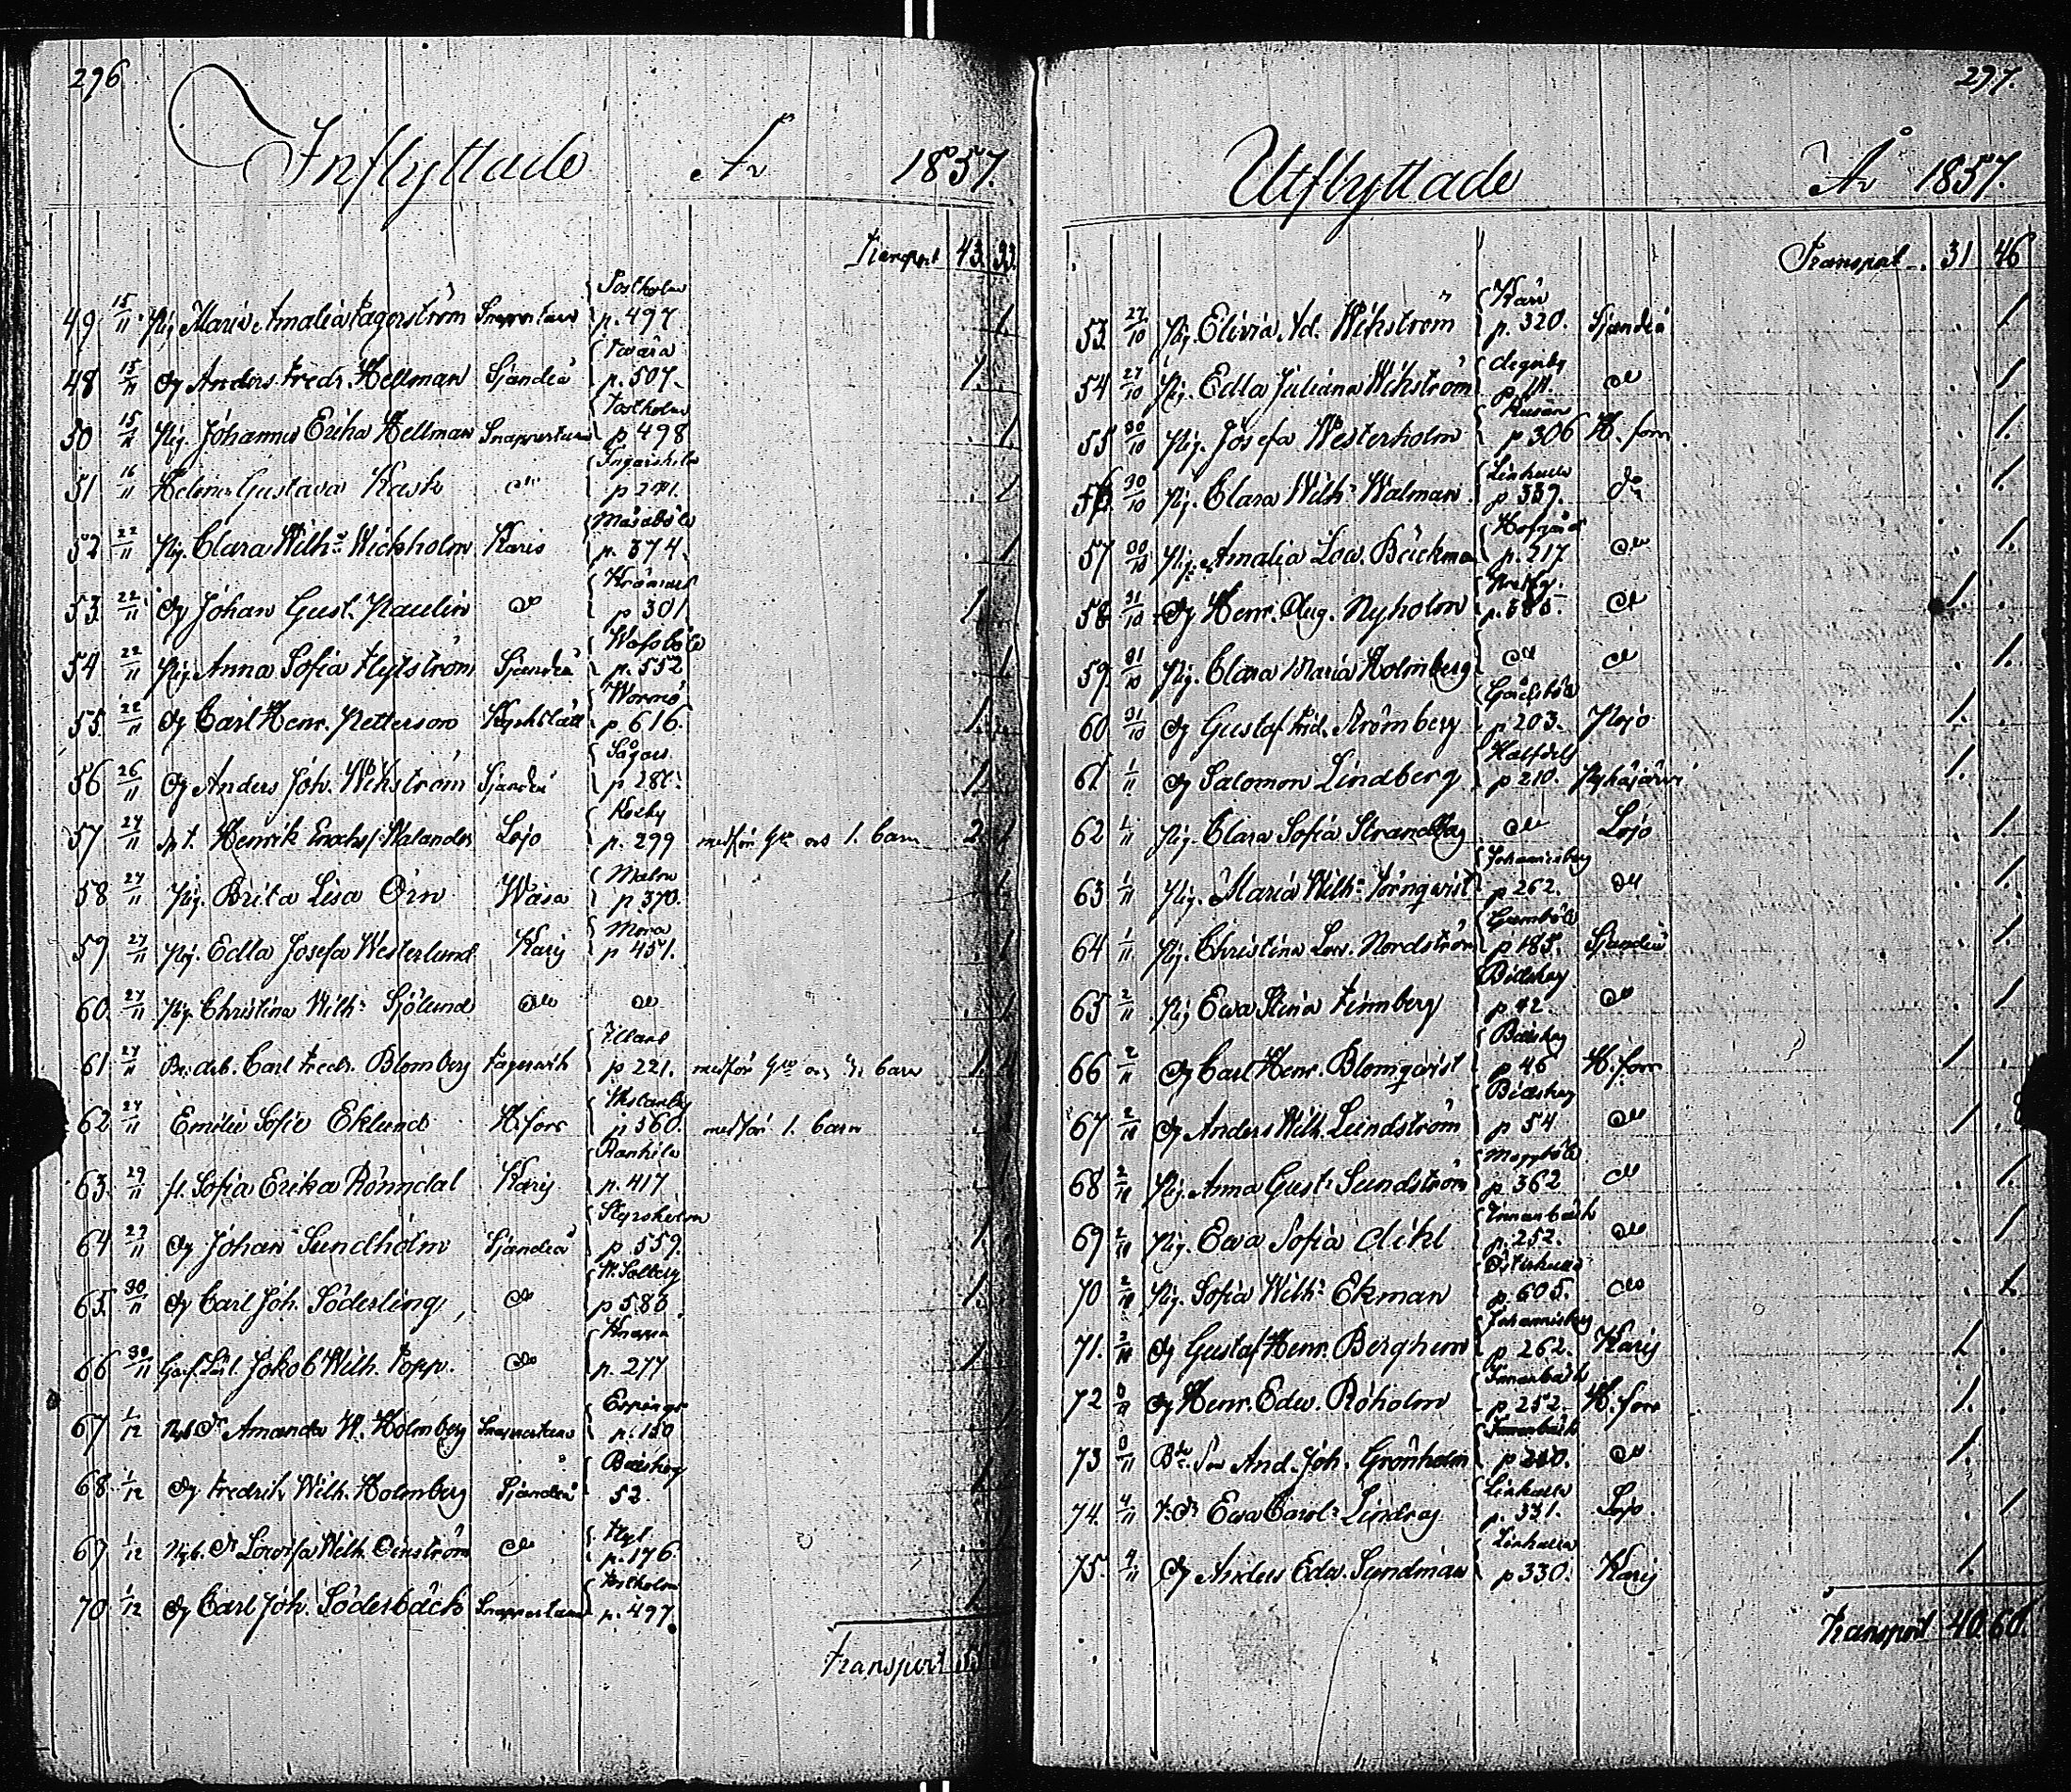 296.
Inflyttade År 1857.
Transport 43. 33.
49 15/11 Pig. Maria Amalia Fagerström Snappertuna Tostholm p. 497 1.
48 15/11 Dg Anders Fredr. Hellman Sjundeå p. 507. 1.
50 15/11 Pig. Johanna Erika Hellman Snappertuna Tostholm p 498 1.
51 16/11 Helena Gustava Rask do Ingarskila p 241. 1
52 22/11 Pig. Clara Wilh:a Wickholm Karis Måsaböle p. 374. 1
53. 22/11 Dg Johan Gust. Paulin do p 301 1.
54 22/11 Pig. Anna Sofia Flytström Sjundeå p. 552 1.
55. 22/11 Dg Carl Henr. Petterson Kyrkslätt Wormö p 616. 1.
56 26/11 Dg Anders Joh. Wikström Sjundeå Sågars p 286. 1.
57 27/11 Henrik Walander Lojo Kocky p. 299 medför h:u och 1. barn 2. 1
58 27/11 Pig. Brita Lisa Örn Wasa Malm p. 370. 1.
59 27/11 Pig. Edla Josefa Westerlund Karis Mora p 451. 1
60. 27/11 Pig. Christina Wilh:a Sjölund do do 1
61 27/11 Carl Fredr. Blomberg Fagervik p 221. medför h:u och barn 1.
62 27/11 Emilie Sofie Eklund H:fors p 560. medför 1. barn
63. 29/11 Sofia Erika Rönndal Karis Rankila p. 417
64 29/11 Dg Johan Sundholm Sjundeå Styrsholm p 559. 1.
65. 30/11 Dg Carl Joh. Söderling do p 586 1.
66 30/11 Jakob Wilh. Popp. do p. 277 1.
67 1/12 Amanda W. Holmberg Snappertuna Espings p. 150 1
68. 1/12 Dg Fredrik Wilh. Holmberg Sjundeå Båtskog 52. 1.
69 1/12 Lovisa Wilh. Enström do p. 176.
70 1/12 Dg Carl Joh. Söderbäck Snappertuna Tostholm p. 497. 1.
Transport
297.
Utflyttade År 1857.
Transport 31 46
53. 27/10 Pig. Elivia Ad. Wikström p. 320. Sjundeå 1
54 27/10 Pig. Edla Juliana Wikström Degerby do 1.
55 30/10 Pig. Josefa Westerholm p 306 H. fors 1.
56. 30/10 Pig. Clara Wilh:a Walman Linkulla p 337. do 1.
57 30/10 Pig. Amalia Lov. Bäckman Hofgård p. 217 do 1.
58 31/10 Dg Henr. Aug. Nyholm p. 585. do 1.
59. 31/10 Pig. Clara Maria Holmberg do do 1.
60 31/10 Dg Gustaf Frid. Strömberg p 203. Pojo 1.
61. 1/11 Dg Salomon Lindberg Halfdels p 210. Pyhäjärvi 1.
62 1/11 Pig. Clara Sofia Strandberg do Lojo 1.
63 1/11 Pig. Maria Wilh:a Törnqvist Johannisberg p 262. do 1.
64 1/11 Pig. Christina Lov. Nordström Gamböle p 185. Sjundeå 1.
65 2/11 Pig. Ewa Stina Finnberg Båtskog p 42. do 1
66 2/11 Dg Carl Henr. Blomqvist Båtskog p 46 H:fors 1.
67 2/11 Dg Anders Wilh. Lundström Båtskog p 54 do 1.
68 2/11 Pig. Anna Gust:a Sundström p 362 do 1.
69 2/11 Pig. Ewa Sofia Öskl Innanbäck p. 252. do 1
70 2/11 Pig. Sofia Wilh:a Ekman Österkulla p 605. do 1.
71. 2/11 Dg Gustaf Henr. Berghem Johannisberg p 262. Karis 1.
72 3/11 Dg Henr. Edw. Röholm Innanbäck p 252. H. fors 1.
73 3/11 And. Joh. Grönholm Innanbäck do 1.
74. 4/11 Ewa Carol:a Lindroos Linkulla p. 331. Lojo 1
75. 4/11 Dg Anders Edw. Sundman Linkulla p 330. Karis 1.
Transport 40. 60.